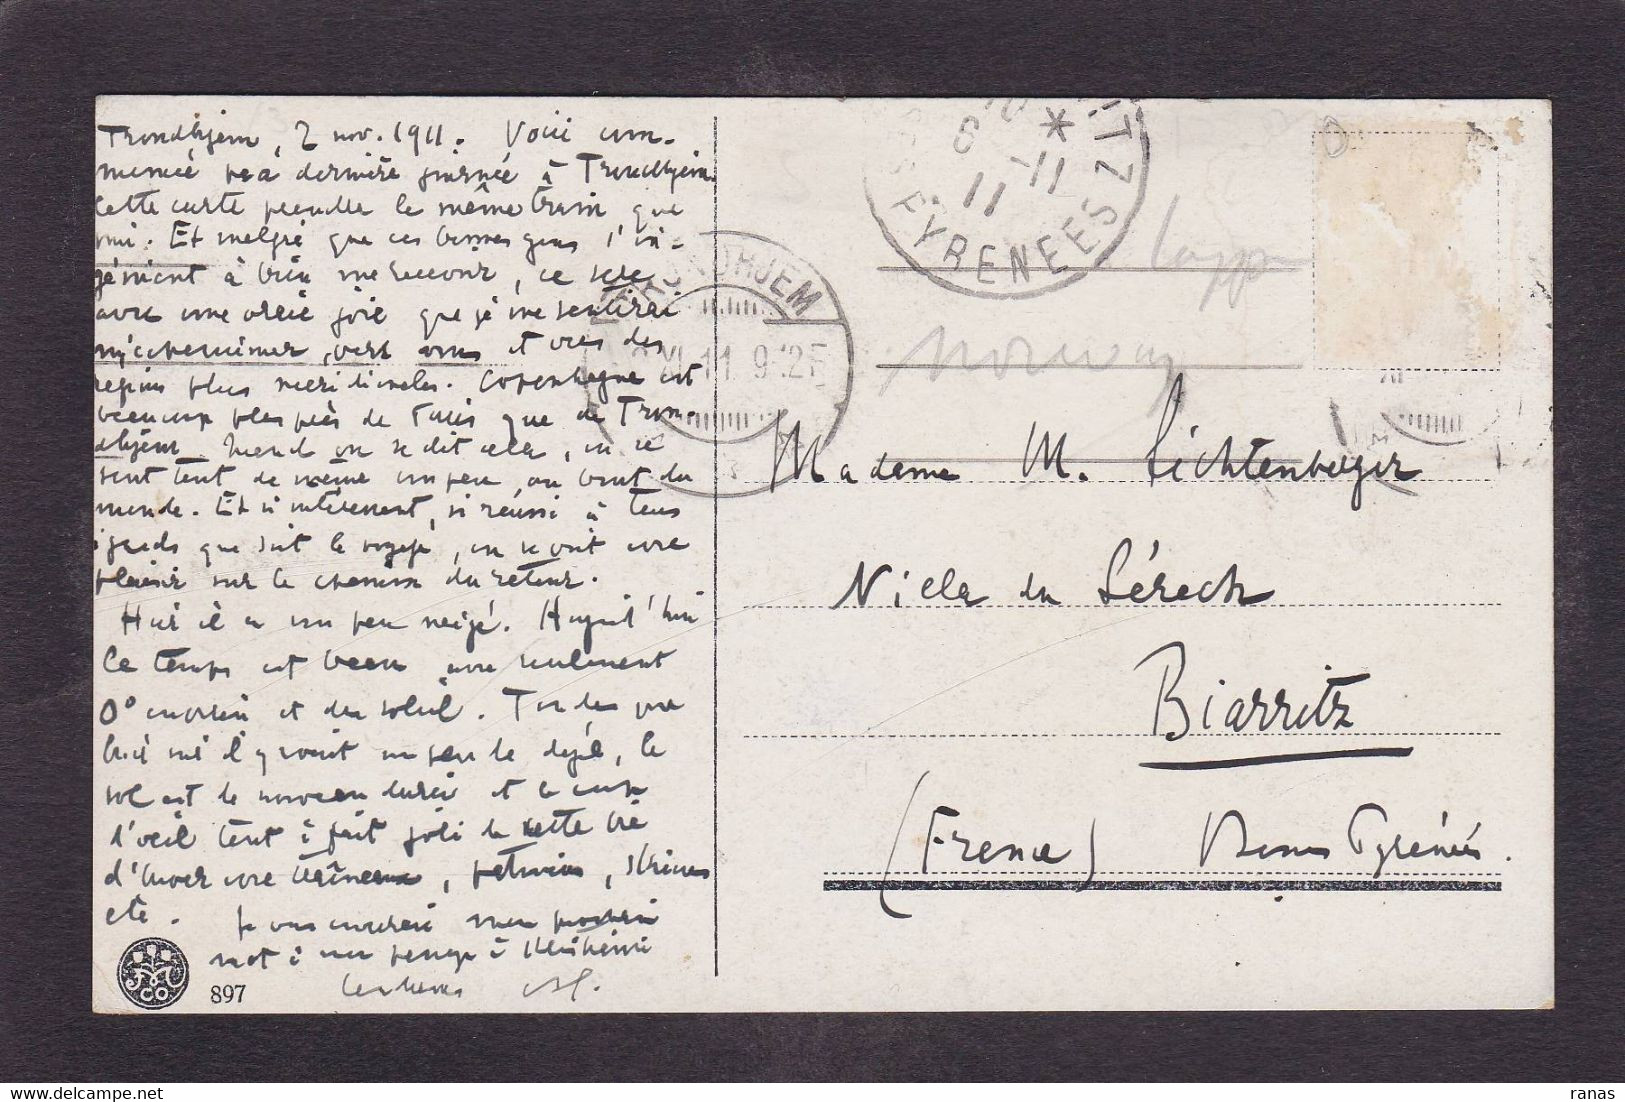 Trondhjem, 2 nov. 1911. Voici com-
mencée ma dernière journée à Trondhjem.
Cette carte prendra le même train que
moi. Et malgré que ces bonnes gens s'in-
génient à bien me recevoir, ce sera
avec une vraie joie que je me sentirai
m'acheminer vers vous et vers des
régions plus méridionales. Copenhague est
beaucoup plus près de Paris que de Tron-
dhjem. Quand on se dit cela, on se
sent tout de même un peu au bout du
monde. Et si intéressant, si réussi à tous
égards que soit le voyage, on se voit avec
plaisir sur le chemin du retour.
Hier il a un peu neigé. Aujourd'hui
le temps est beau avec seulement
0° environ et du soleil. Tandis que
hier il y avait un peu de dégel, le
sol est de nouveau durci et le coup
d'oeil tout à fait joli de cette vie
d'hiver avec traîneaux, patineurs, skieurs
etc. Je vous enverrai mon prochain
mot à mon passage à
897
TRONDHJEM
XI 11 9
PYRENEES
11-11
Norway
Madame M. Lichtenberger
Villa du
Biarritz
(France) Basses Pyrénées.
ranas